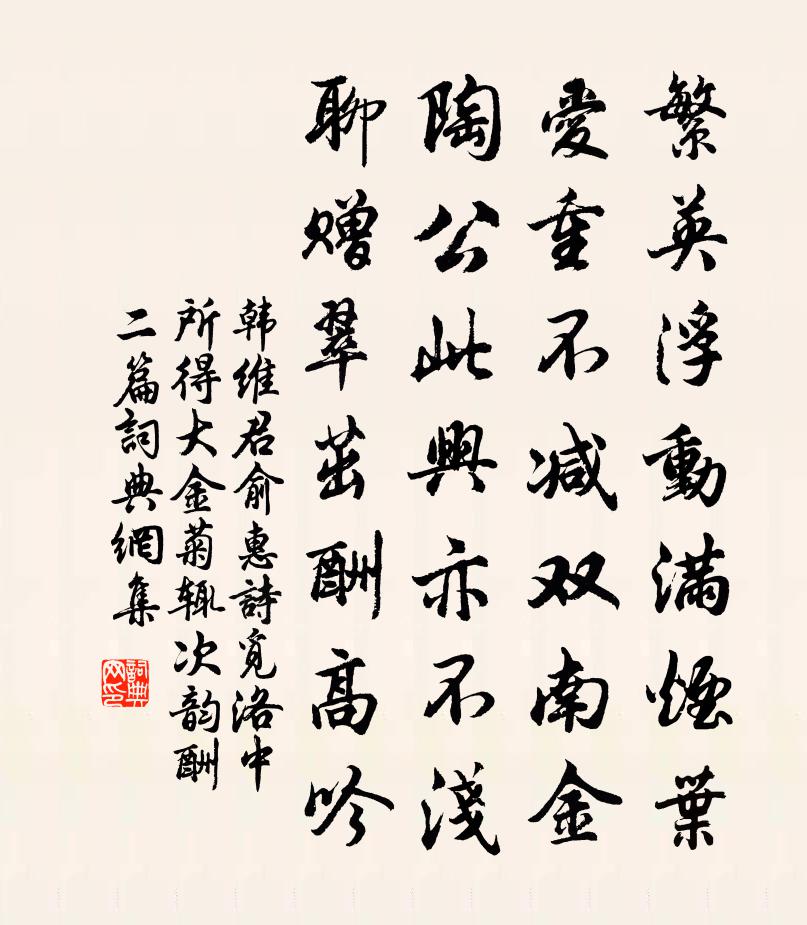 繁英浮動滿煙葉
愛重不减双南金
陶公此興亦不淺
聊赠翠茁酬高吟
韩维君俞惠詩覓洛中
所得大金菊辄次韵酬
二篇詞典網集
詞典
网